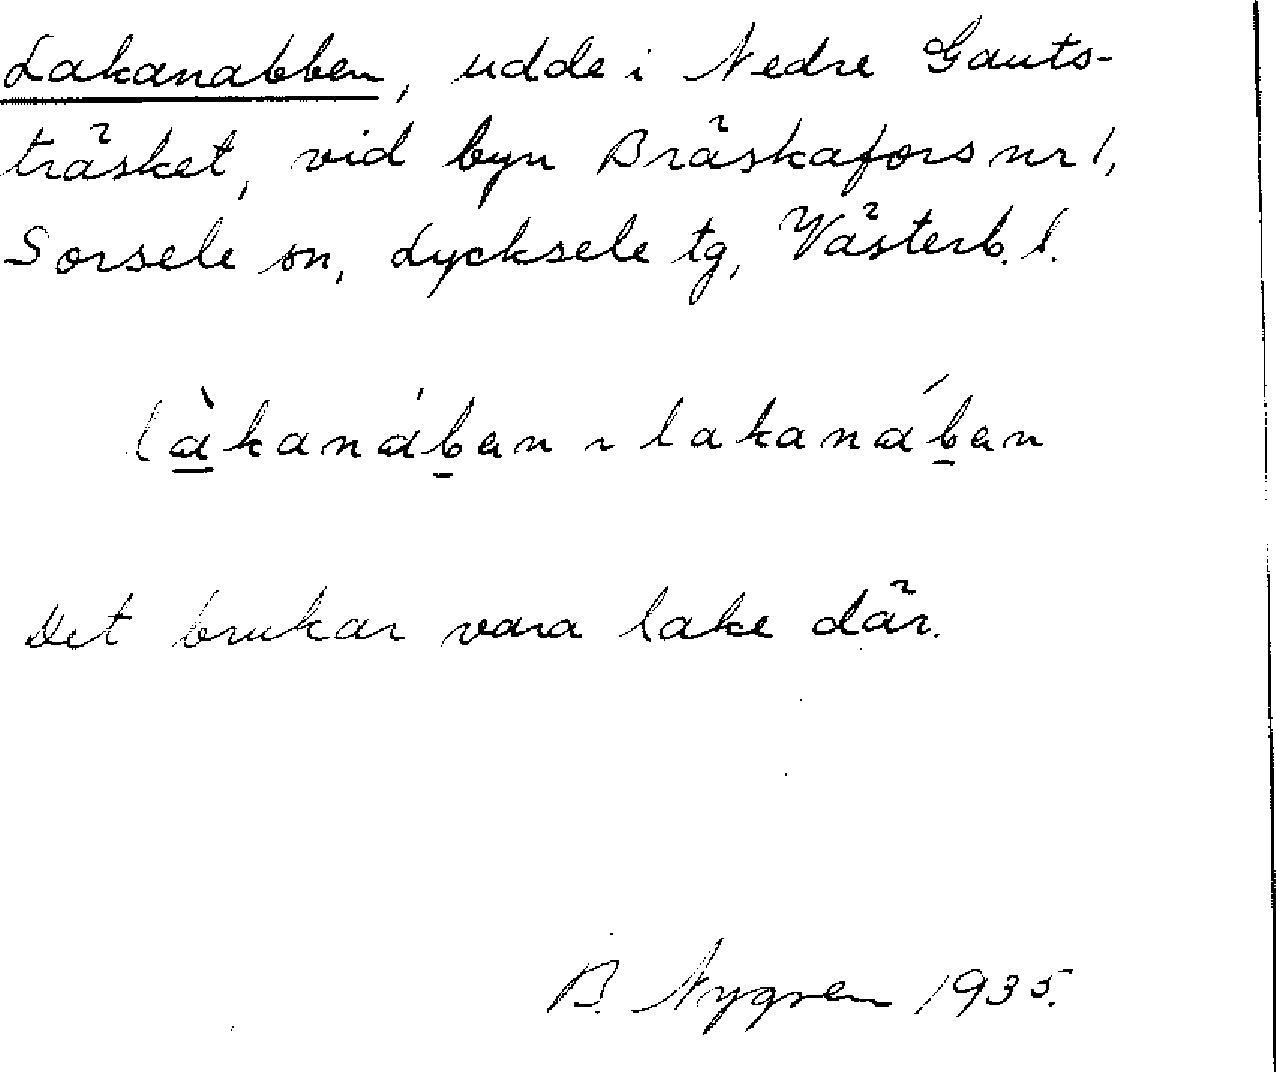 Lakanabben, udde i Nedre Gauts-
träsket, vid byn Bräskafors nr 1,
Sorsele sn, Lycksele tg, Västerb. l.
l̀akanában ~ lakanában
Det brukar vara lake där.
B. Nygren 1935.